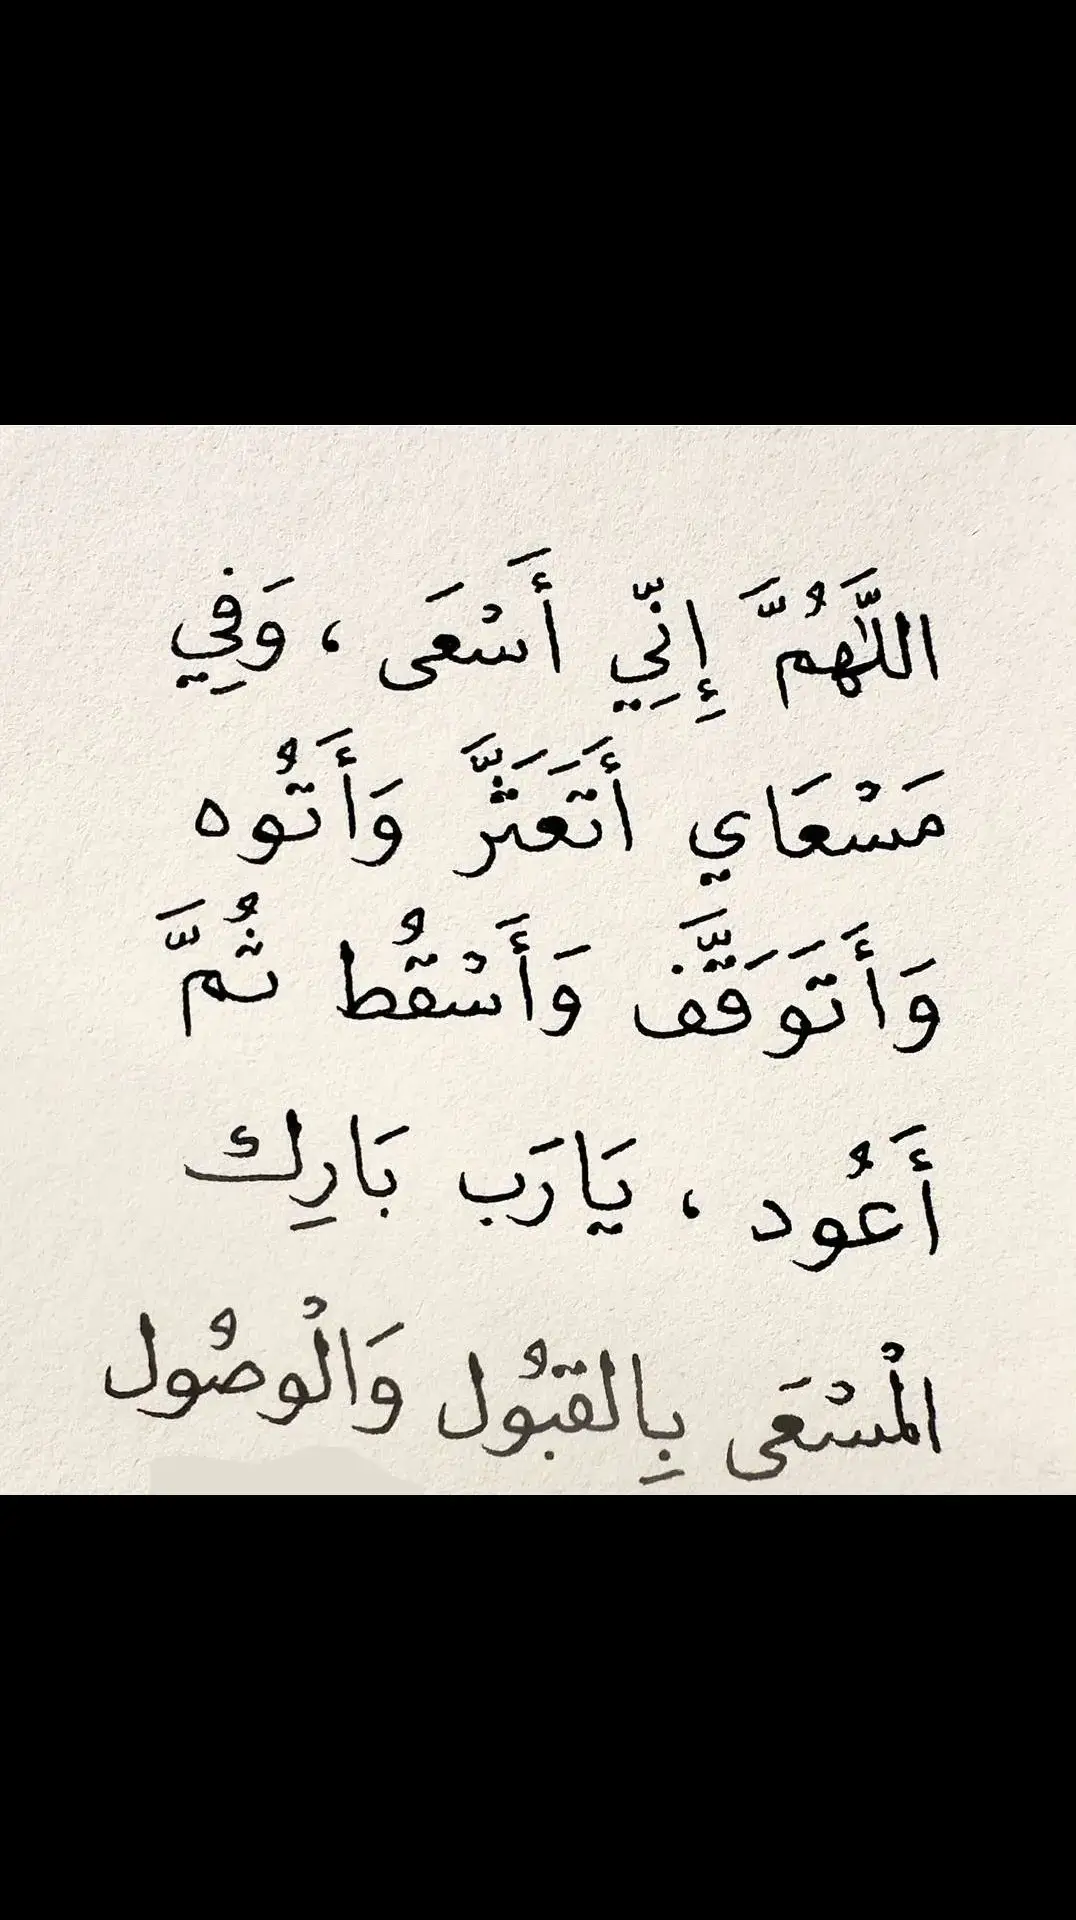 اللَّهُمَّ إِنِّي أَسْعَى ، وَفِي
مَسْعَاي أَتَعَثَّرَ وَأَتُوه
وَأَتَوَقَّف وَأَسْقُط ثُمَّ
أَعُود ، يَارَب بَارِك
الْمَسْعَى بِالقبُول وَالْوصُول